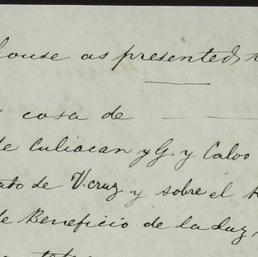 house as presented
cosa de
de Culiacan y G. y Calvo
de V.cruz y sobre el
de Beneficio de la